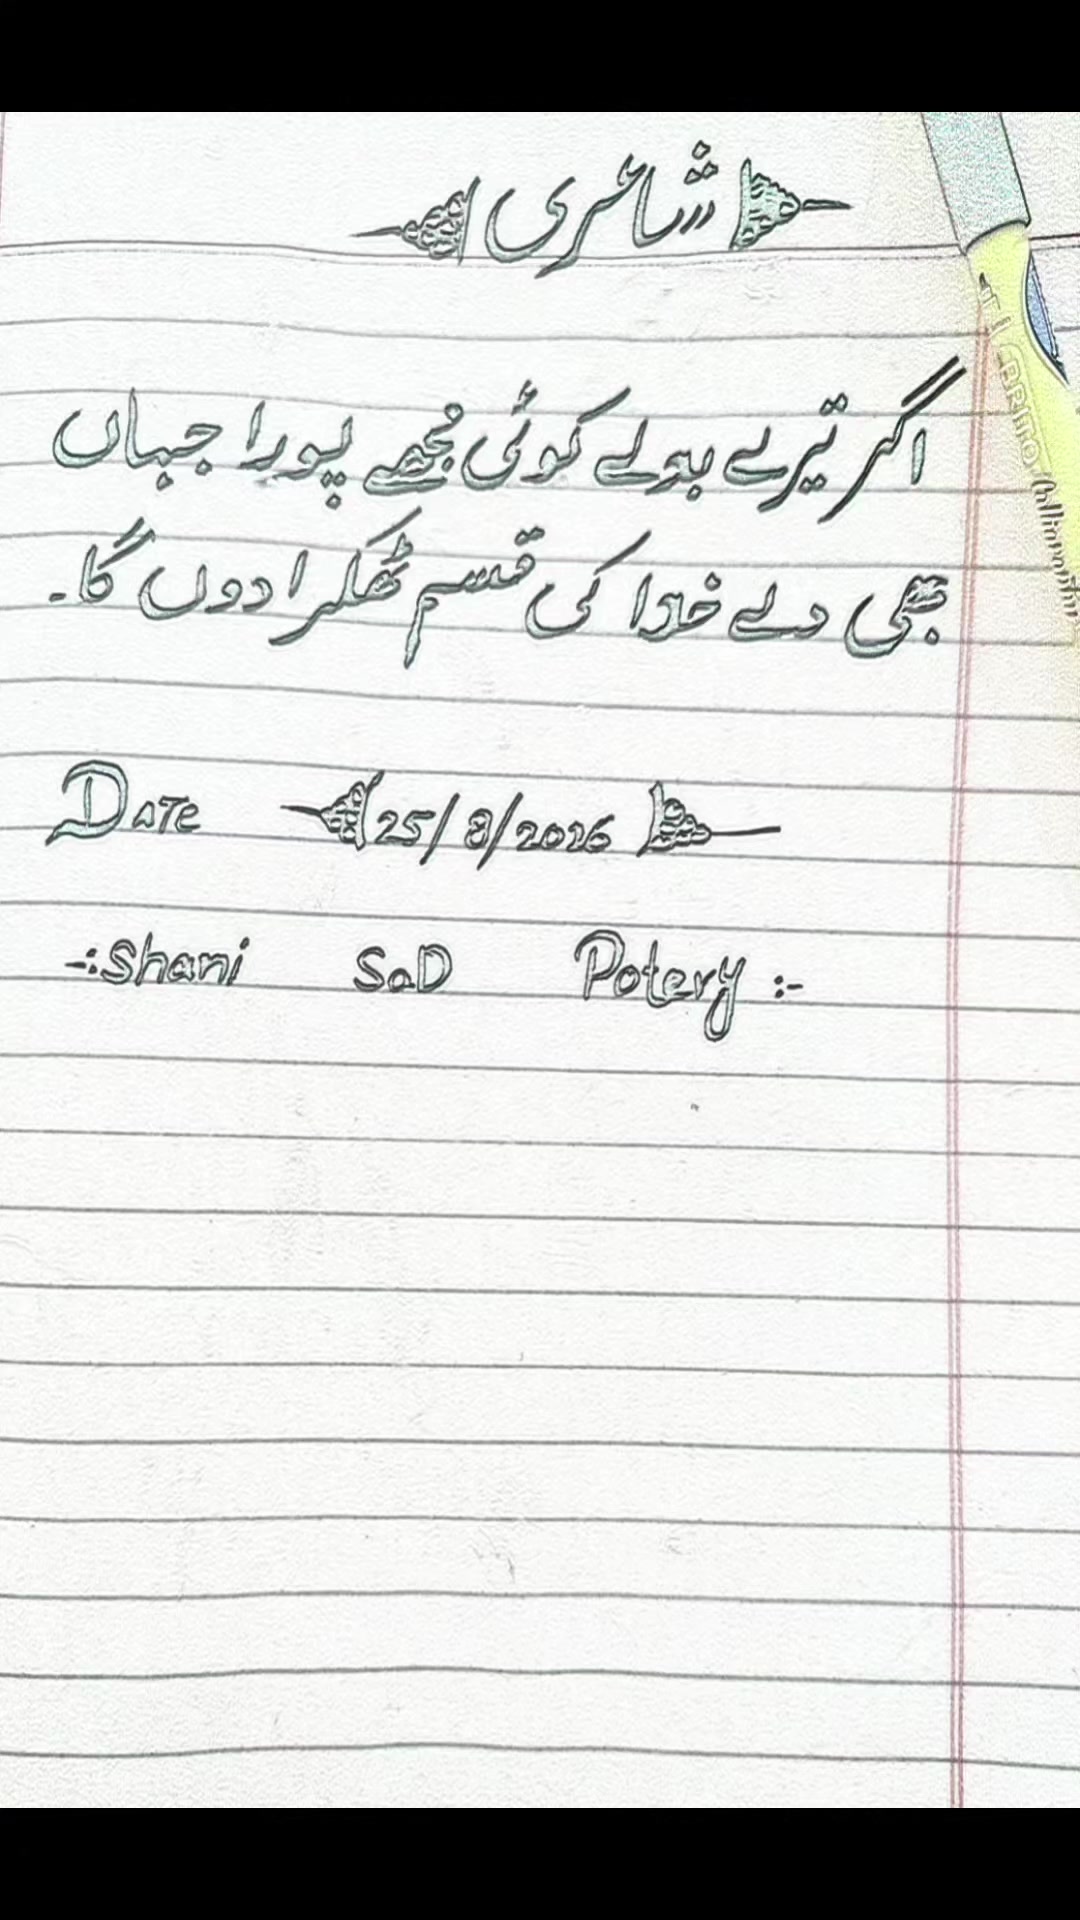 شاعری
اگر تیرے بدلے کوئی مجھے پورا جہاں
بھی دے خدا کی قسم ٹھکرا دوں گا۔
Date 25/8/2026
-:Shani SaD Potery :-
BRITO